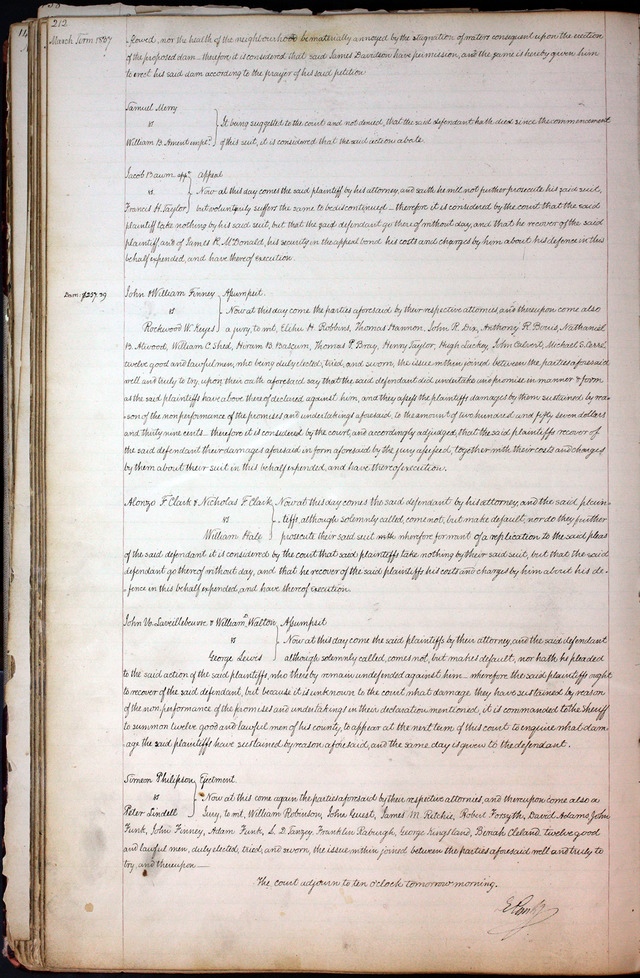 212
March Term 1837
flowed, nor the health of the neighbourhood be materially annoyed by the stagnation of waters consequent upon the erection
of the proposed dam – therefore, it is considered that said James Davidson have permission, and the same is hereby given him
to erect his said dam according to the prayer of his said petition.
Samuel Merry
vs
William B. Ament
It being suggested to the court and not denied, that the said defendant hath died since the commencement
of this suit, it is considered that the said action abate.
Jacob Baum appt
vs
Francis H. Taylor
appeal
Now at this day comes the said plaintiff by his attorney, and saith he will not further prosecute his said suit,
but voluntarily suffers the same to be discontinued – therefore it is considered by the court that the said
plaintiff take nothing by his said suit, but that the said defendant go thereof without day, and that he recover of the said
plaintiff and of James R. McDonald, his security in the appeal bond his costs and charges by him about his defence in this
behalf expended, and have thereof execution.
Dam: $257.39
John & William Finney
vs
Rockwood W. Keyes
Assumpsit.
Now at this day come the parties aforesaid by their respective attornies and thereupon come also
a jury, to wit, Elihu H. Robbins, Thomas Hannon, John R. Dix, Anthony R. Bouis, Nathaniel
B. Atwood, William C. Shed, Hiram B. Bascum, Thomas P. Bray, Henry Taylor, Hugh Luckey, John Calvert, Michael S. Cerré
twelve good and lawful men, who being duly elected, tried, and sworn, the issue within joined between the parties aforesaid
well and truly to try, upon their oath aforesaid say that the said defendant did undertake and promise in manner & form
as the said plaintiffs have above thereof declared against him, and they assess the plaintiffs damages by them sustained by rea-
son of the nonperformance of the promises and undertakings aforesaid, to the amount of two hundred and fifty seven dollars
and thirty nine cents – therefore it is considered by the court, and accordingly adjudged, that the said plaintiffs recover of
the said defendant their damages aforesaid in form aforesaid by the jury assessed, together with their costs and charges
by them about their suit in this behalf expended, and have thereof execution.
Alonzo F. Clark & Nicholas F. Clark
vs
William Hale
Now at this day comes the said defendant by his attorney, and the said plain-
tiffs, although solemnly called, come not, but make default, nor do they further
prosecute their said suit with wherefore for want of a replication to the said pleas
of the said defendant it is considered by the court that said plaintiffs take nothing by their said suit, but that the said
defendant go thereof without day, and that he recover of the said plaintiffs his costs and charges by him about his de-
fence in this behalf expended, and have thereof execution.
John W. & William Walton
vs
George Lewis
Assumpsit
Now at this day come the said plaintiffs by their attorney, and the said defendant
although solemnly called, comes not, but makes default, nor hath he pleaded
to the said action of the said plaintiffs, who thereby remain undefended against him – wherefore the said plaintiffs ought
to recover of the said defendant, but because it is unknown to the court what damage they have sustained by reason
of the non performance of the promises and undertakings in their declaration mentioned, it is commanded to the sheriff
to summon twelve good and lawful men of his county, to appear at the next term of this court to enquire what dam-
age the said plaintiffs have sustained by reason aforesaid, and the same day is given to the defendant.
Simeon Philipson
vs
Peter Lindell
Ejectment.
Now at this come again the parties aforesaid by their respective attornies, and thereupon come also a
Jury, to wit, William Robinson, John Guest, James M. Ritchie, Robert Forsyth, David Adams, John
Funk, John Finney, Adam Funk, L. D. Tanzey, Franklin Raburgh, George Kingsland, Benah Cleland, twelve good
and lawful men, duly elected, tried, and sworn, the issue within joined between the parties aforesaid well and truly to
try, and thereupon —
The court adjourn to ten o'clock tomorrow morning.